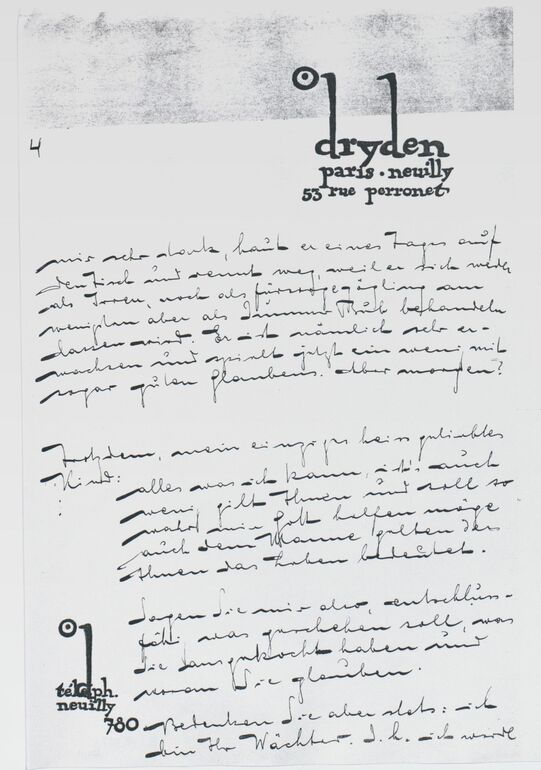 4
dryden
paris · neuilly
53 rue perronet
mir sehr stark, haut er eines Tages auf
den Tisch und rennt weg, weil er sich weder
als Irren, noch als Fürsorgezögling am
wenigsten aber als dummer Bub behandeln
lassen wird. Er ist nämlich sehr er-
wachsen und spielt jetzt ein wenig mit
sogar guten Glaubens. Aber morgen?
Trotzdem, mein einziges heiss geliebtes
Kind:
alles was ich kann, ist's auch
wenig gilt Ihnen und soll so
wahr mir Gott helfen möge
auch dem Manne gelten der
Ihnen das Leben bedeutet.
Sagen Sie mir also, entschluss-
fähig was geschehen soll, was
Sie ausgekocht haben und
woran Sie glauben.
Bedenken Sie aber stets: ich
bin Ihr Wächter. D.h. ich werde
teleph.
neuilly
780